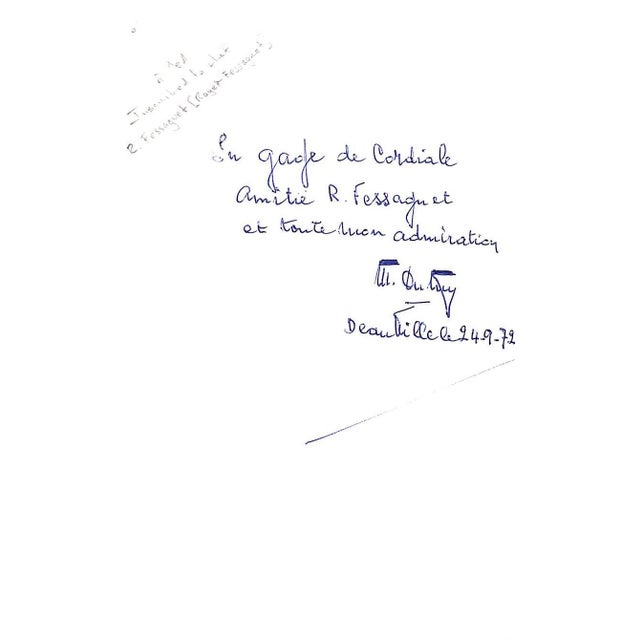 Inscribed to chef
R. Fessaguet [Roger Fessaguet]
En gage de Cordiale
Amitié R. Fessaguet
et toute mon admiration
Deauville le 24-9-72